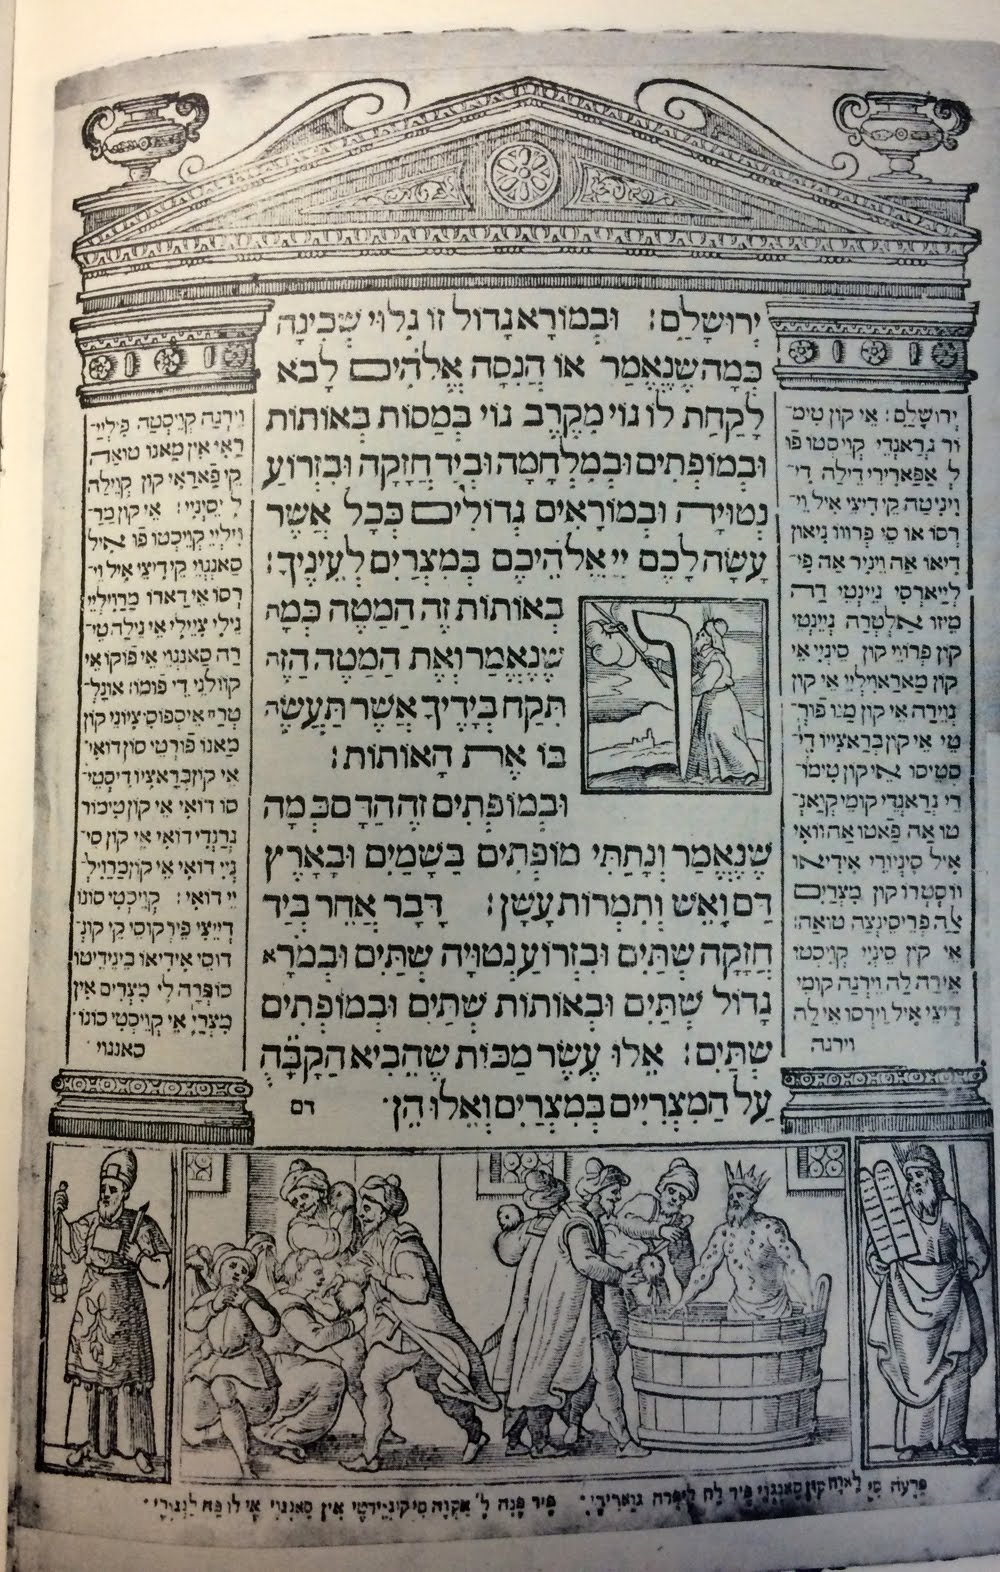 יְרוּשָׁלַםִ: וּבְמוֹרָא גָדוֹל זוֹ גִלּוּי שְׁכִינָה
כְּמָה שֶׁנֶּאֱמַר אוֹ הֲנִסָּה אֱלֹהִים לָבֹא
לָקַחַת לוֹ גוֹי מִקֶּרֶב גוֹי בְּמַסּוֹת בְּאוֹתוֹת
וּבְמוֹפְתִים וּבְמִלְחָמָה וּבְיָד חֲזָקָה וּבִזְרוֹעַ
נְטוּיָה וּבְמוֹרָאִים גְדוֹלִים כְּכָל אֲשֶׁר
עָשָׂה לָכֶם יְיָ אֱלֹהֵיכֶם בְּמִצְרַיִם לְעֵינֶיךָ:
בְּאוֹתוֹת זֶה הַמַּטֶּה כְּמָה
שֶׁנֶּאֱמַר וְאֶת הַמַּטֶּה הַזֶּה
תִּקַּח בְּיָדֶיךָ אֲשֶׁר תַּעֲשֶׂה
בּוֹ אֶת הָאוֹתוֹת:
וּבְמוֹפְתִים זֶה הַדָּם כְּמָה
שֶׁנֶּאֱמַר וְנָתַתִּי מוֹפְתִים בַּשָּׁמַיִם וּבָאָרֶץ
דָּם וָאֵשׁ וְתִמְרוֹת עָשָׁן: דָּבָר אֲחֵר בְּיָד
חֲזָקָה שְׁתַּיִם וּבִזְרוֹעַ נְטוּיָה שְׁתַּיִם וּבְמֹרָא
גָדוֹל שְׁתַּיִם וּבְאוֹתוֹת שְׁתַּיִם וּבְמוֹפְתִים
שְׁתַּיִם: אֵלוּ עֶשֶׂר מַכּוֹת שֶׁהֵבִיא הַקָּבָּ״ה
עַל הַמִּצְרִיִים בְּמִצְרַיִם וְאֵלוּ הֵן
דם
ירושלם: אי קון טימ־
ור גראנדי קויסטו פו
ל אפארירי דילה די־
ויניטה קי דיצי איל וי־
רסו או סי פרווו גיאון
דיאו אה ויניר אה פי־
לייארסי ג׳ינטי דה
מיזו אלטרה ג׳ינטי
קון פרווי קון סיניי אי
קון מאראוילייי אי קון
גוירה אי קון מנו פור־
טי אי קון בראצייו די־
סטיסו אי קון טימו־
רי גראנדי קומי קואנ־
טו אה פאטו אה וואי
איל סיניורי אידיאו
ווסטרו קון מצרים
אלה פריסינצה טואה:
אי קון סיניי קויסטי
אירה לה וירגה קומי
דיצי איל וירסו אי לה
וירגה
וירגה קויסטה פיליי־
ראי אין מאנו טואה
קי פאראי קון קוילה
לי סיניי: אי קון מר־
וילייי קויסטו פו איל
סאנגוי קי דיצי איל וי־
רסו אי דארו מרוילייי
נילי ציילי אי נילה טי־
רה סאנגוי אי פוקו אי
קולוני די פומו: אונל־
טרי איספוסיציוני קון
מאנו פורטי סון דואי
אי קון בראציו דיסטי־
סו דואי אי קון טימור
גרנדי דואי אי קון סי־
ניי דואי אי קון מרויל־
ייי דואי: קויסטי סונו
דייצי פירקוסי קי קונ־
דוסי אידיאו בינידיטו
סופרה לי מצרים אין
מצרי אי קויסטי סונו
סאנגוי
פרעה סי לאוה קון סאנגוי פיר לה ליפרה גוארירי